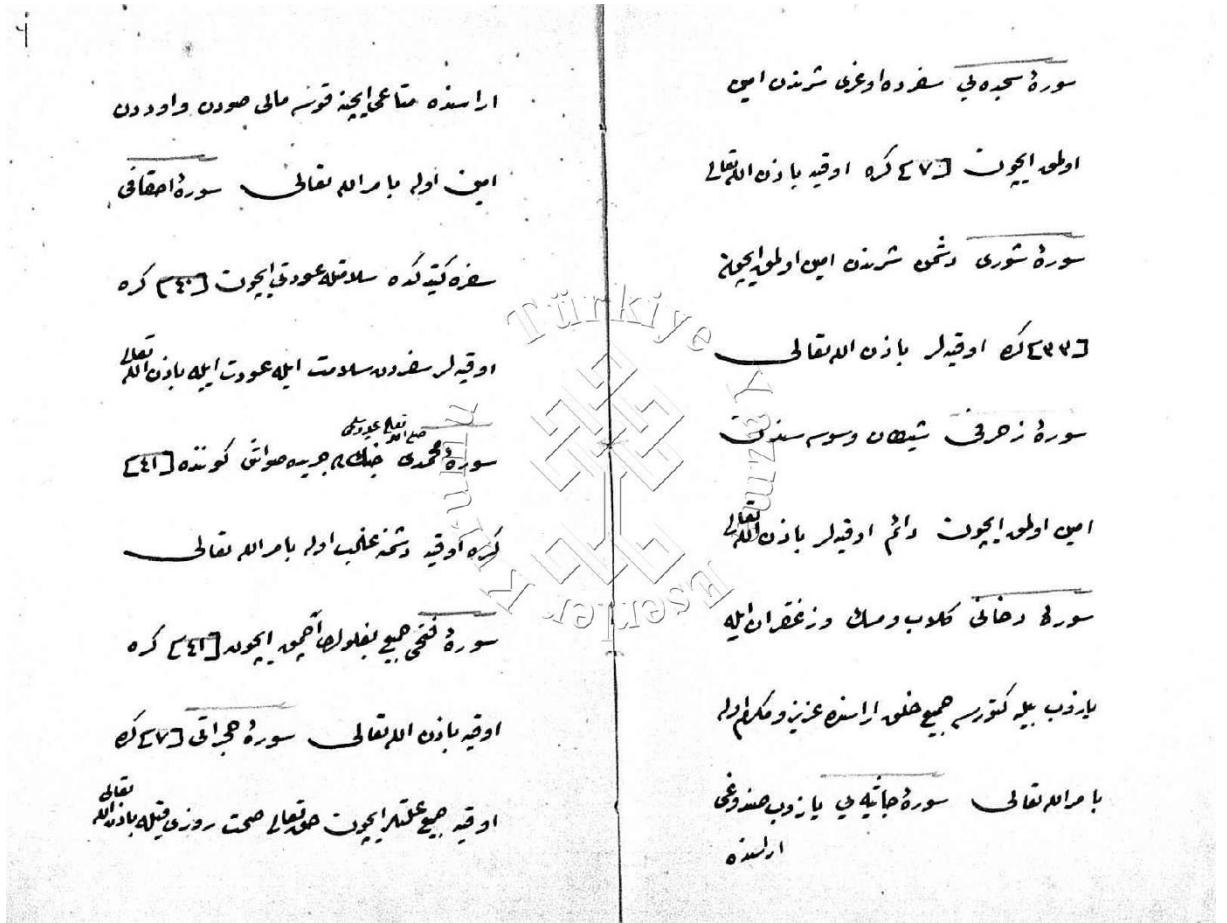 سورۀ سجده‌يی سفرده اوغری شرندن امین
اولمق ایچون [٧] کره اوقیه باذن الله تعالی
سورۀ شوری دشمن شرندن امین اولمق ایچون
[٣٣] کره اوقیه‌لر باذن الله تعالی
سورۀ زخرفی شیطان وسوسه سندن
امین اولمق ایچون دائم اوقیه‌لر باذن الله تعالی
سورۀ دخانی کلاب ومسك وزعفران ایله
یازوب بیله کتورسه جمیع خلق اراسنده عزیز ومکرم اوله
بامر الله تعالی سورۀ جاثیه یی یازوب صندوغی
اراسنده
اراسنده متاعی ایچنه قونسه مالی صودن واوددن
امین اوله بامر الله تعالی سورۀ احقافی
سفره کیتدکده سلامتله عودتی ایچون [٤٠] کره
اوقیه‌لر سفردن سلامت ایله عودت ایله باذن الله تعالی
سورۀ محمدی صلی الله تعالی علیه وسلم صواش کوننده [٤١]
کره اوقیه دشمنه غالب اوله بامر الله تعالی
سورۀ فتحی جمیع بغلولری آچمق ایچون [٤١] کره
اوقیه باذن الله تعالی سورۀ حجراتی [٧] کره
اوقیه جمیع علتلر ایچون حق تعالی صحت روزی قیله باذن الله تعالی
Türkiye Yazma Eserler Kurumu